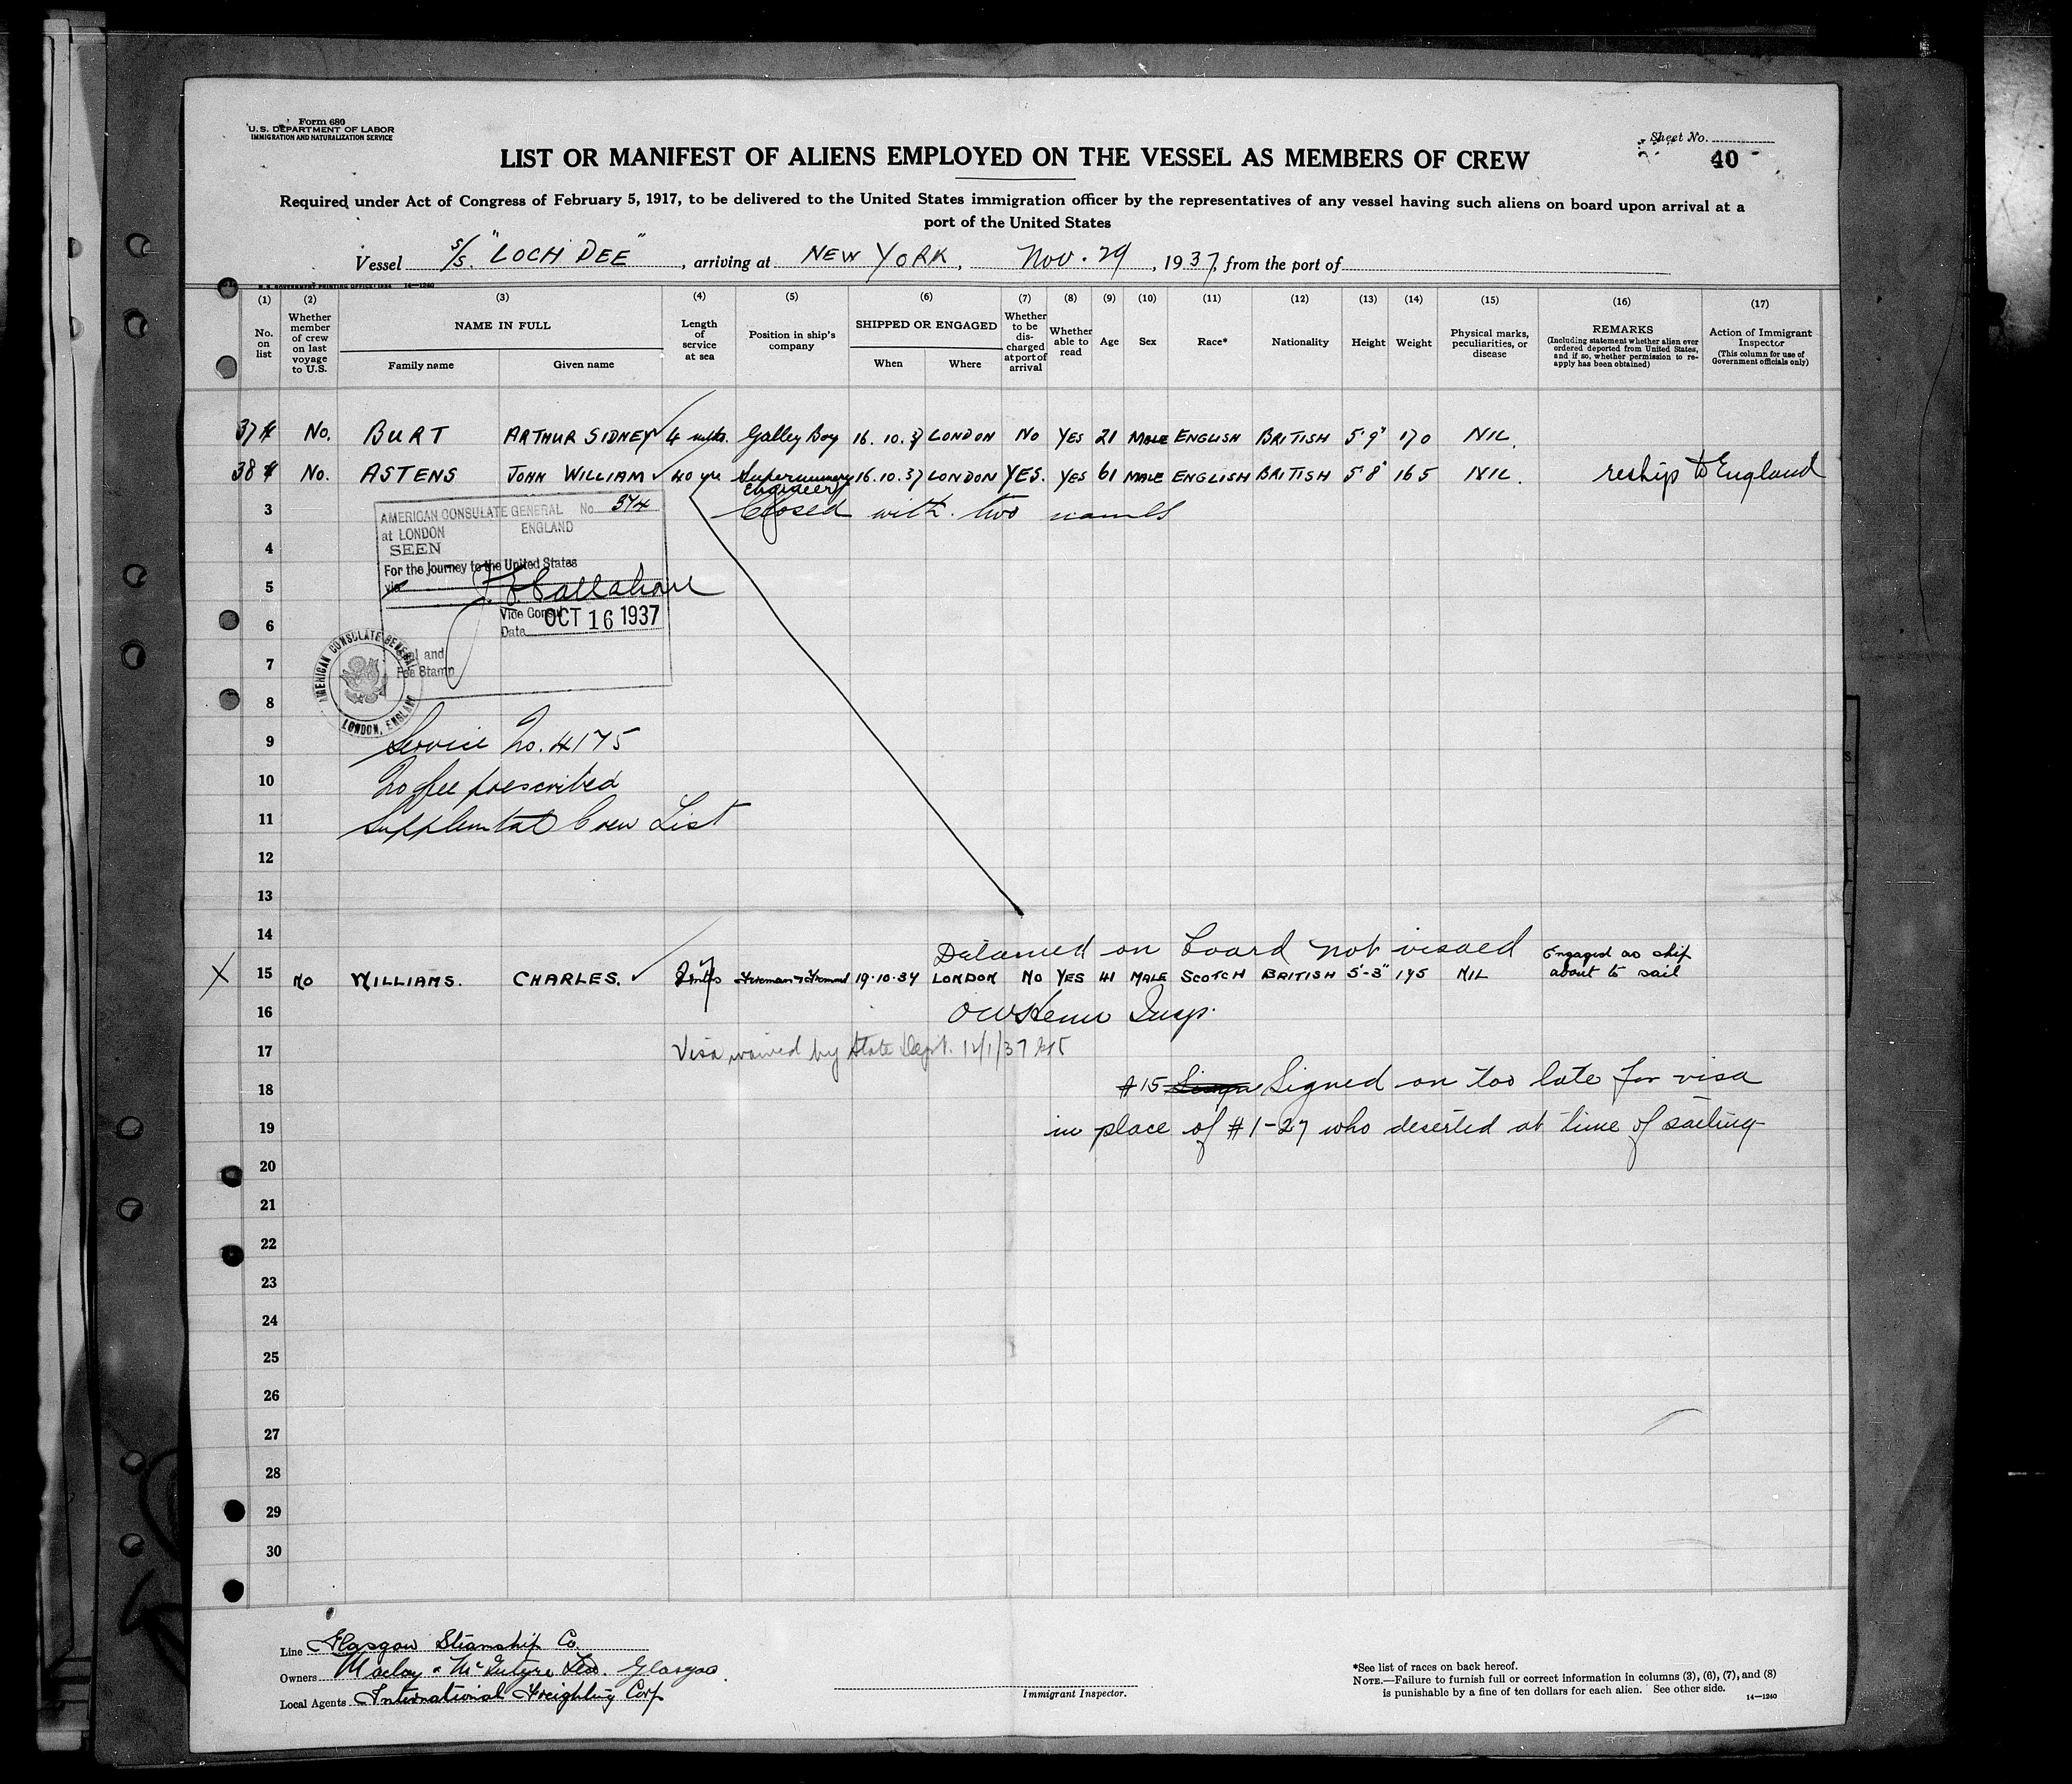 Form 680
U.S. DEPARTMENT OF LABOR
IMMIGRATION AND NATURALIZATION SERVICE
Sheet No.
40
LIST OR MANIFEST OF ALIENS EMPLOYED ON THE VESSEL AS MEMBERS OF CREW
Required under Act of Congress of February 5, 1917, to be delivered to the United States immigration officer by the representatives of any vessel having such aliens on board upon arrival at a
port of the United States
Vessel S/S. "LOCH DEE", arriving at NEW YORK, Nov. 29, 1937, from the port of
U.S. GOVERNMENT PRINTING OFFICE: 1934 14-1240
(1) (2) (3) (4) (5) (6) (7) (8) (9) (10) (11) (12) (13) (14) (15) (16) (17)
No. on list
Whether member of crew on last voyage to U.S.
NAME IN FULL
Family name Given name
Length of service at sea
Position in ship's company
SHIPPED OR ENGAGED
When Where
Whether to be discharged at port of arrival
Whether able to read
Age
Sex
Race*
Nationality
Height
Weight
Physical marks, peculiarities, or disease
REMARKS
(Including statement whether alien ever ordered deported from United States, and if so, whether permission to re-apply has been obtained)
Action of Immigrant Inspector
(This column for use of Government officials only)
37 No. BURT ARTHUR SIDNEY 4 mths. Galley Boy 16.10.37 LONDON NO YES 21 MALE ENGLISH BRITISH 5'9" 170 NIL.
38 No. ASTENS JOHN WILLIAM 40 yrs Supernumery Engineer 16.10.37 LONDON YES. YES 61 MALE ENGLISH BRITISH 5'8" 165 NIL. reship to England
3 Closed with two names
AMERICAN CONSULATE GENERAL No. 374
at LONDON ENGLAND
SEEN
For the journey to the United States
via
Callahan
Vice Consul
Date OCT 16 1937
Seal and
Fee Stamp
AMERICAN CONSULATE GENERAL
LONDON, ENGLAND
4
5
6
7
8
9 Service No. 4175
10 No fee prescribed
11 Supplemtal Crew List
12
13
14 Detained on board not visaed Engaged as ship
15 NO WILLIAMS. CHARLES. 19.10.37 LONDON NO YES 41 MALE SCOTCH BRITISH 5'-3" 145 NIL about to sail
X
16 Insp.
17 Visa waived by State Dept. 12/1/37
18 #15 Signed on too late for visa
19 in place of #1-27 who deserted at time of sailing
20
21
22
23
24
25
26
27
28
29
30
Line Glasgow Steamship Co.
Owners Maclay & McIntyre Ltd. Glasgow.
Local Agents International Freighting Corp
Immigrant Inspector.
*See list of races on back hereof.
NOTE.—Failure to furnish full or correct information in columns (3), (6), (7), and (8)
is punishable by a fine of ten dollars for each alien. See other side.
14—1240